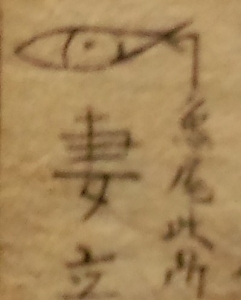 魚尾此所
妻立